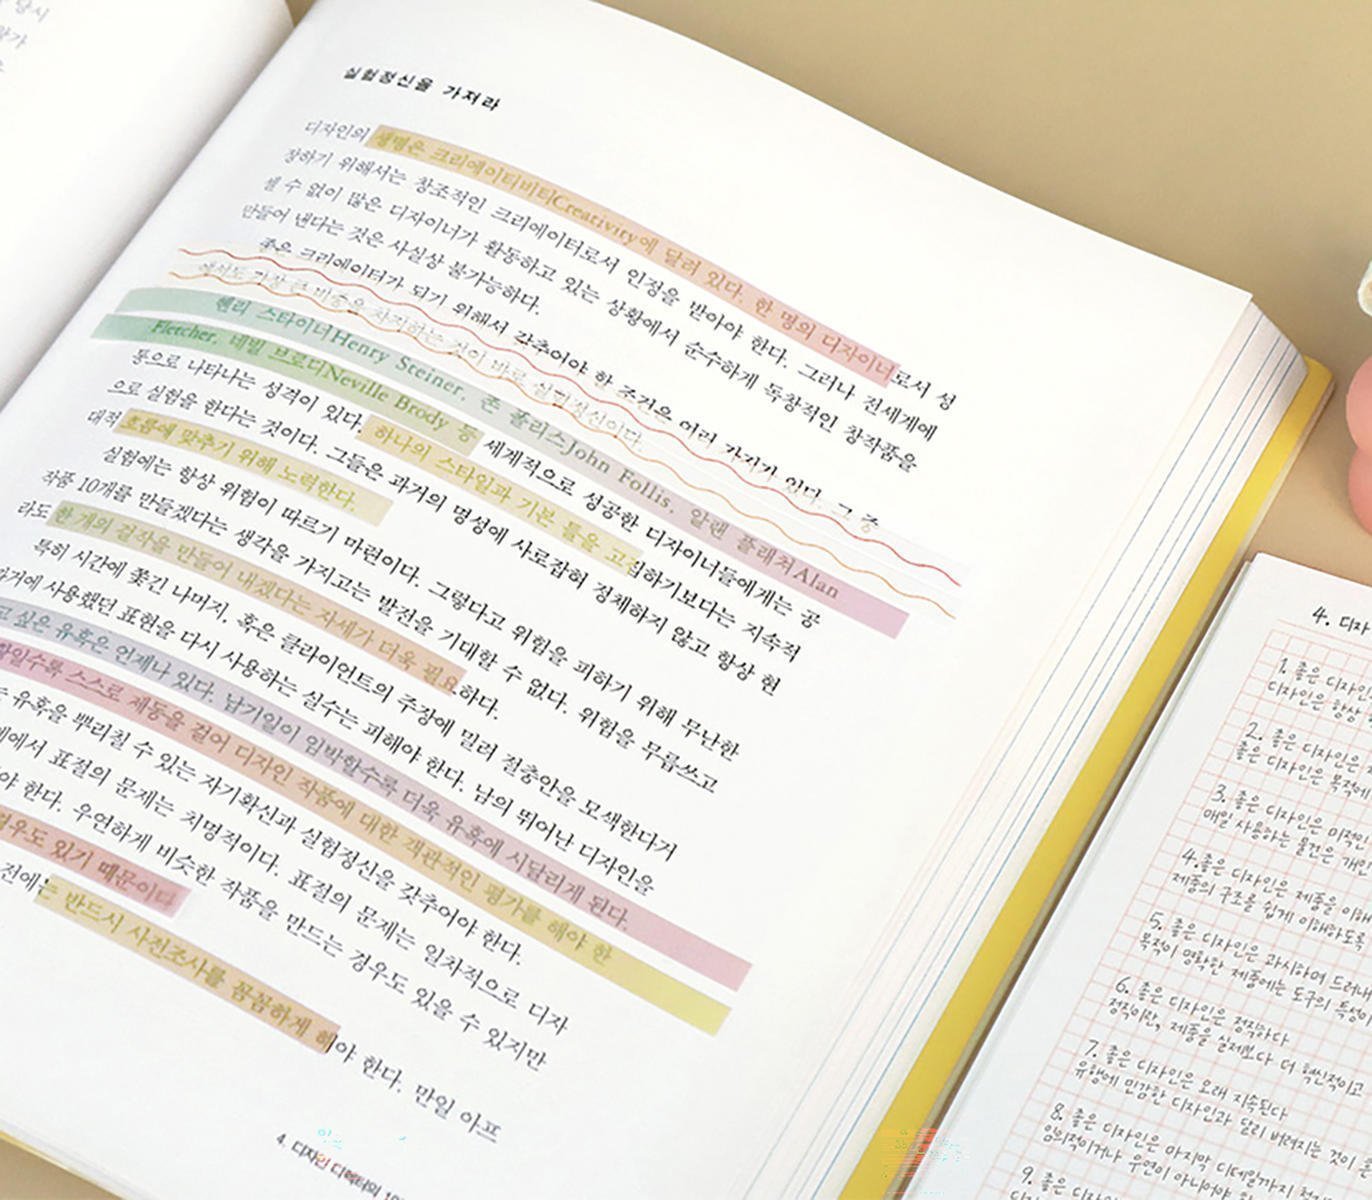 당시
실험정신을 가져라
디자인의 생명은 크리에이티비티Creativity에 달려 있다. 한 명의 디자이너로서 성
장하기 위해서는 창조적인 크리에이터로서 인정을 받아야 한다. 그러나 전세계에
셀 수 없이 많은 디자이너가 활동하고 있는 상황에서 순수하게 독창적인 창작품을
만들어 낸다는 것은 사실상 불가능하다.
좋은 크리에이터가 되기 위해서 갖추어야 할 조건은 여러 가지가 있다. 그 중
에서도 가장 큰 비중을 차지하는 것이 바로 실험정신이다.
헨리 스타이너Henry Steiner, 존 폴리스John Follis, 알랜 플래쳐Alan
Fletcher, 네빌 브로디Neville Brody 등 세계적으로 성공한 디자이너들에게는 공
통으로 나타나는 성격이 있다. 하나의 스타일과 기본 틀을 고집하기보다는 지속적
으로 실험을 한다는 것이다. 그들은 과거의 명성에 사로잡혀 정체하지 않고 항상 현
대적 흐름에 맞추기 위해 노력한다.
실험에는 항상 위험이 따르기 마련이다. 그렇다고 위험을 피하기 위해 무난한
작품 10개를 만들겠다는 생각을 가지고는 발전을 기대할 수 없다. 위험을 무릅쓰고
라도 한 개의 걸작을 만들어 내겠다는 자세가 더욱 필요하다.
특히 시간에 쫓긴 나머지, 혹은 클라이언트의 주장에 밀려 절충안을 모색한다거
과거에 사용했던 표현을 다시 사용하는 실수는 피해야 한다. 남의 뛰어난 디자인을
고 싶은 유혹은 언제나 있다. 납기일이 임박할수록 더욱 유혹에 시달리게 된다.
일수록 스스로 제동을 걸어 디자인 작품에 대한 객관적인 평가를 해야 한
유혹을 뿌리칠 수 있는 자기확신과 실험정신을 갖추어야 한다.
에서 표절의 문제는 치명적이다. 표절의 문제는 일차적으로 디자
야 한다. 우연하게 비슷한 작품을 만드는 경우도 있을 수 있지만
경우도 있기 때문이다
전에는 반드시 사전조사를 꼼꼼하게 해야 한다. 만일 아프
4. 디자인 디렉터의
4. 디자
1. 좋은 디자인
디자인은 항상
2. 좋은 디자인은
좋은 디자인은 목적에
3. 좋은 디자인은 미적인
매일 사용하는 물건은 개인
4. 좋은 디자인은 제품을 이해
제품의 구조를 쉽게 이해하도록
5. 좋은 디자인은 과시하며 드러내
목적이 명확한 제품에는 도구의 특성이
6. 좋은 디자인은 정직하다
정직이란, 제품을 실제보다 더 혁신적이고
7. 좋은 디자인은 오래 지속된다
유행에 민감한 디자인과 달리 버려지는 것이
8. 좋은 디자인은 마지막 디테일까지
임의적이거나 우연이 아니어야
9. 좋은
디자인